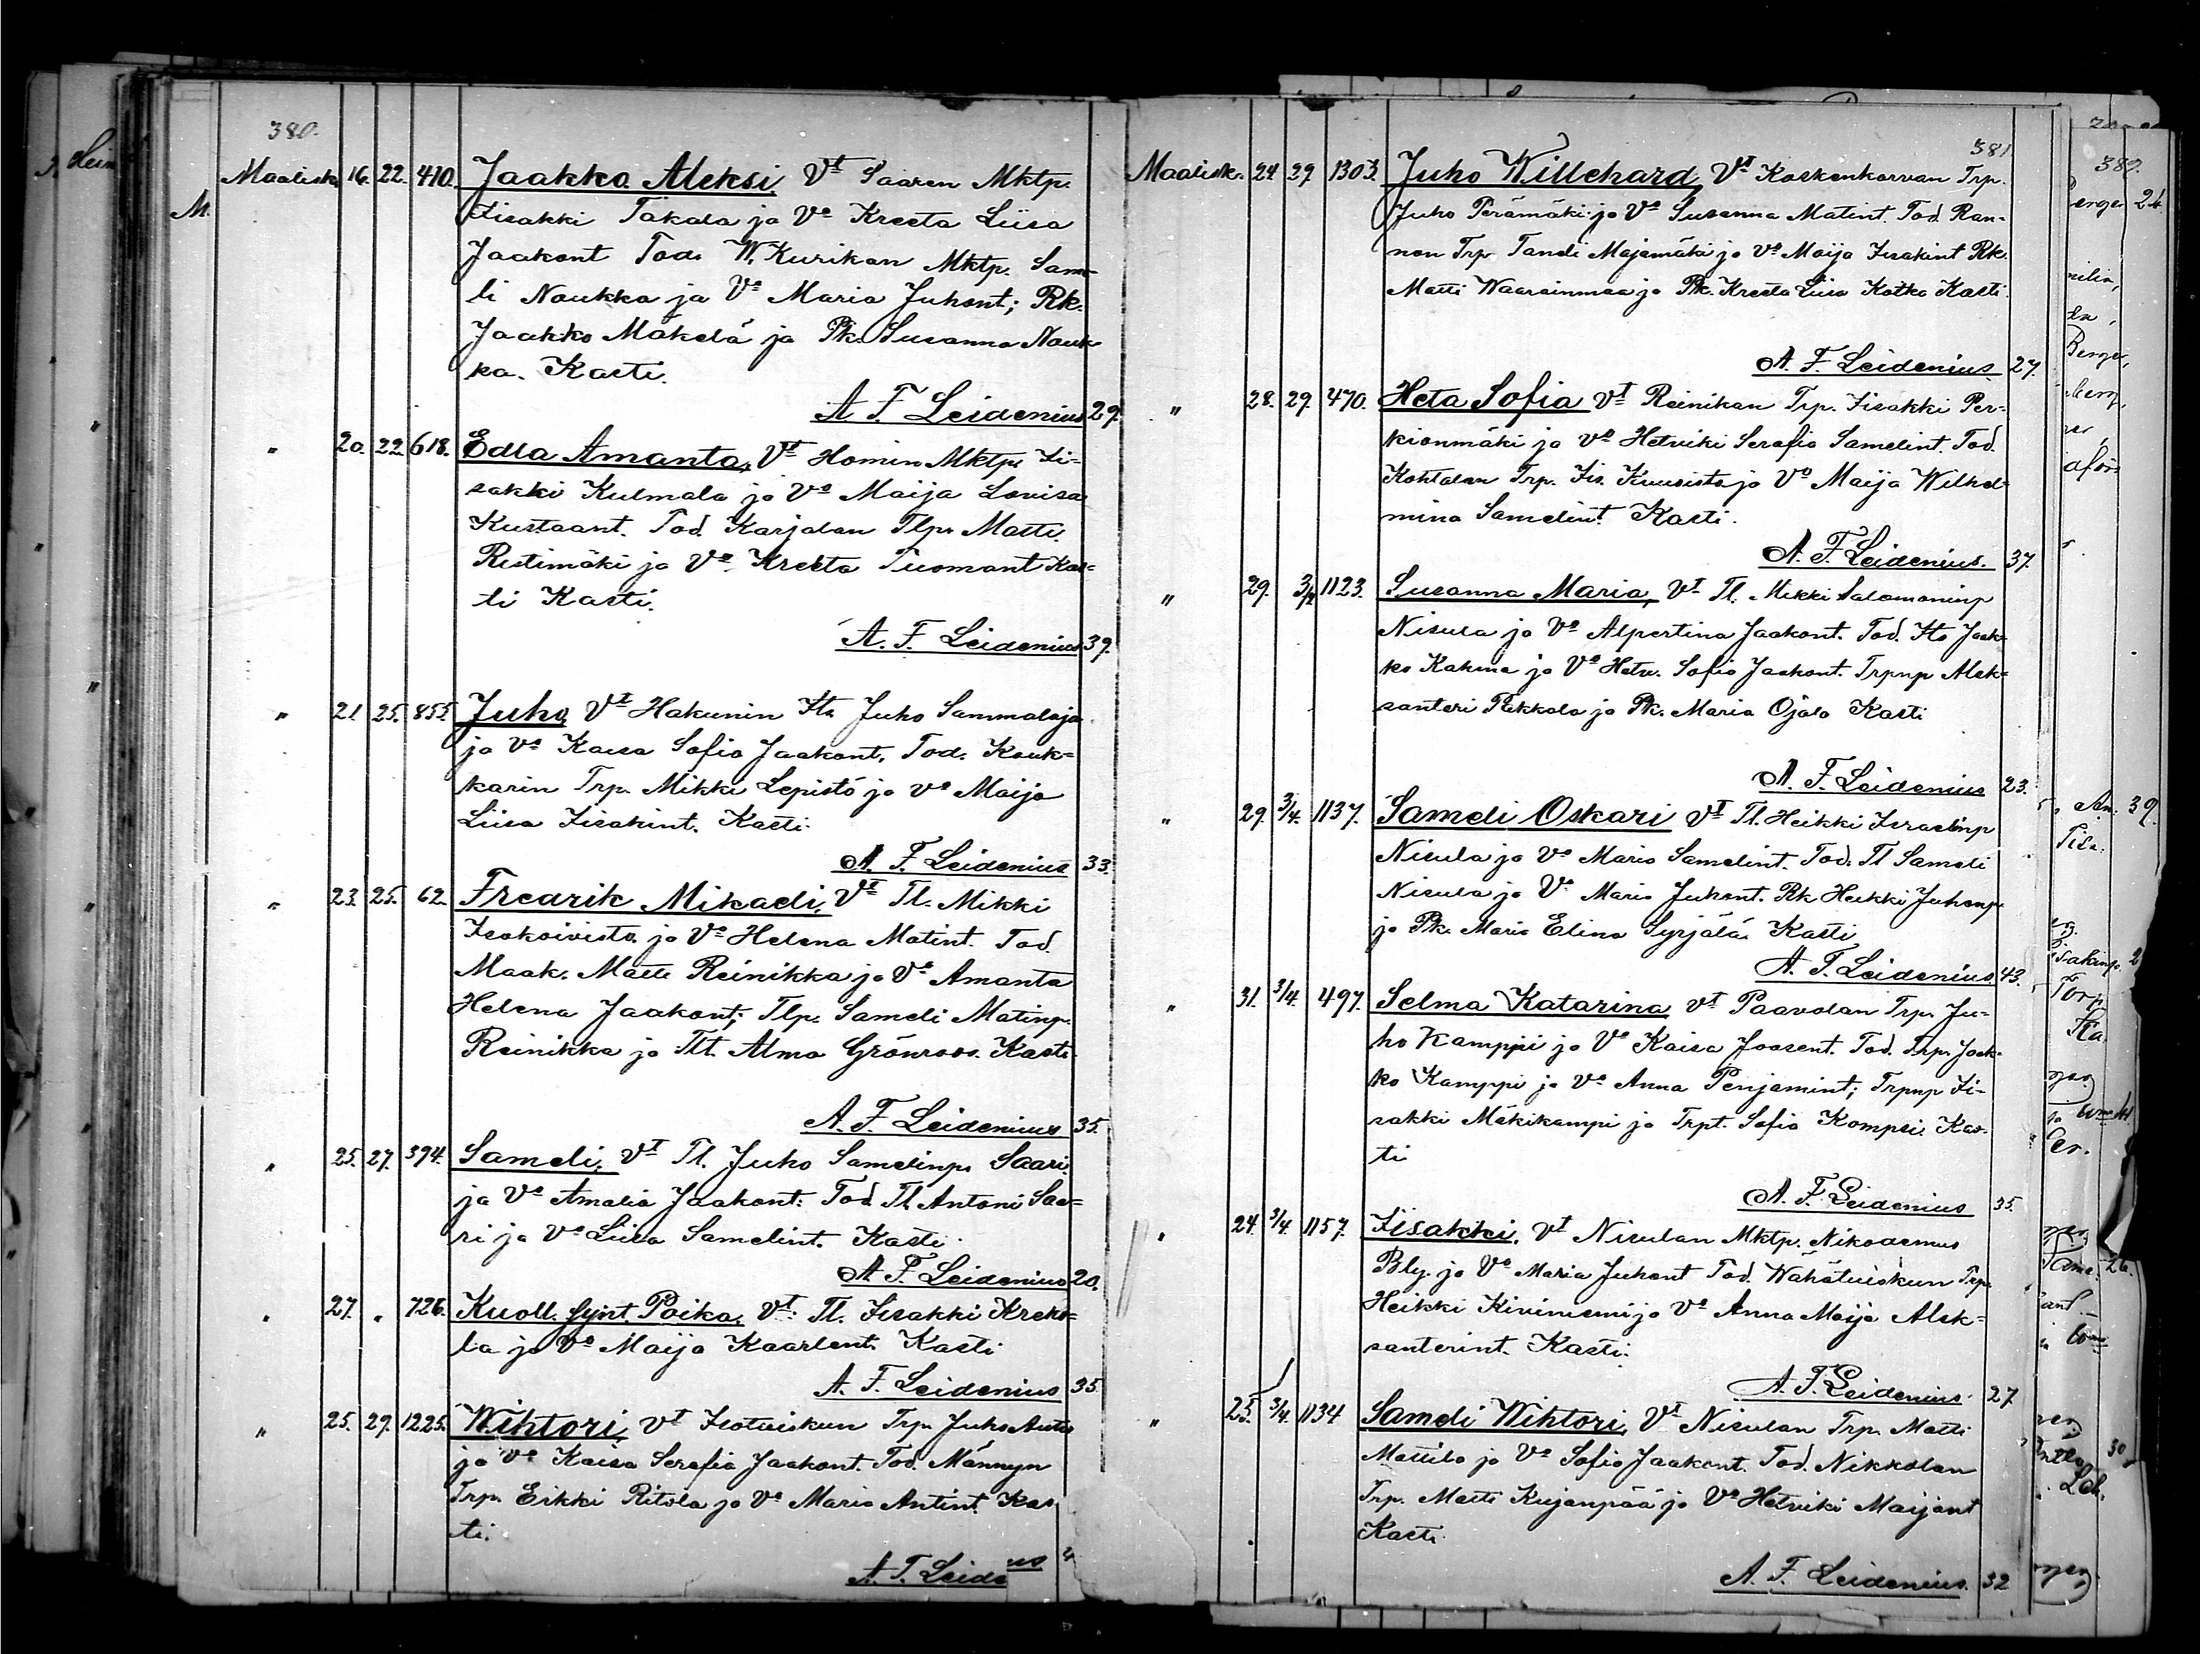 380.
Maalisk. 16. 22. 410. Jaakko Aleksi, Vt Saaren Mktp.
Iisakki Takala ja Vo Kreeta Liisa
Jaakont Tod. W. Kurikan Mktp. Sam-
li Naukka ja Vo Maria Juhont; Rk.
Jaakko Mäkelä ja Pk. Susanna Nauk-
ka. Kasti.
A F Leidenius 29.
" 20. 22. 618. Edla Amanta, Vt Homin Mktp. Ii=
sakki Kulmala ja Vo Maija Lovisa
Kustaant. Tod. Karjalan Tlp. Matti
Ristimäki ja Vo Kreeta Tuomant Kas=
ti Kasti.
A. F. Leidenius 39.
" 21. 25. 855. Juho, Vt Hakunin Ito Juho Sammalaja
ja Vo Kaisa Sofia Jaakont. Tod. Kouk=
karin Trp. Mikki Lepistö ja Vo Maija
Liisa Iisakint. Kasti.
A. F. Leidenius 33.
" 23. 25. 62. Fredrik Mikaeli, Vt Tl. Mikki
Isokoivisto ja Vo Helena Matint. Tod.
Maak. Matti Reinikka ja Vo Amanta
Helena Jaakont; Tlp. Sameli Matinp.
Reinikka ja Tlt. Alma Grönroos. Kasti
A. F. Leidenius 35.
" 25. 27. 394. Sameli, Vt Tl. Juho Samelinp. Saari
ja Vo Amalia Jaakont. Tod. Tl. Antoni Saa=
ri ja Vo Liisa Samelint. Kasti.
A F. Leidenius 20.
" 27. " 726. Kuoll. synt. Poika, Vt. Tl. Iisakki Kreko=
la ja Vo Maija Kaarlent. Kasti
A. F. Leidenius 35.
" 25. 29. 1225. Wihtori, Vt Isotuiskun Trp. Juho
ja Vo Kaisa Serafia Jaakont. Tod. Männyn
Trp. Erkki Ritola ja Vo Maria Antint. Kas
ti.
A. F. Leide us
381
Maalisk. 24. 29. 1303. Juho Willehard, Vt Koskenkorvan Trp.
Juho Perämäki ja Vo Susanna Matint. Tod. Ran-
non Trp. Taneli Majamäki ja Vo Maija Iisakint Rk.
Matti Waarainmaa ja Pk. Kreeta Liisa Kotka Kasti.
A. F. Leidenius 27.
" 28. 29. 470. Heta Sofia Vt Reinikan Trp. Iisakki Per-
kiönmäki ja Vo Hetviki Serafia Samelint. Tod.
Kohtalan Trp. Iis. Kuusisto ja Vo Maija Wilhel=
mina Samelint. Kasti.
A. F. Leidenius. 37.
" 29. 3/4 1123. Susanna Maria, Vt Tl. Mikki Salomoninp
Nisula ja Vo Alpertina Jaakont. Tod. Ito Jaak=
ko Kahma ja Vo Hetv. Sofia Jaakont. Trpnp Alek=
santeri Pakkala ja Pk. Maria Ojala Kasti
A. F. Leidenius 23.
" 29. 3/4. 1137. Sameli Oskari Vt Tl. Heikki Israelinp
Nisula ja Vo Maria Samelint. Tod. Tl Sameli
Nisula ja Vo Maria Juhont. Rk Heikki Juhonp
ja Pk. Maria Elina Syrjälä. Kasti
A. F. Leidenius 43.
" 31. 3/4. 497. Selma Katarina, Vt Paavolan Trp. Ju=
ho Kamppi ja Vo Kaisa Joosent. Tod. Trp. Jaak-
ko Kamppi ja Vo Anna Penjamint; Trpnp Ii-
sakki Mäkikamppi ja Trpt. Sofia Kamppi. Kas-
ti
A. F. Leidenius 35.
" 24. 3/4. 1157. Iisakki, Vt Nisulan Mktp. Nikodemus
Bly. ja Vo Maria Juhont Tod. Wähätuiskun Trp.
Heikki Kiviniemi ja Vo Anna Maija Alek=
santerint. Kasti.
A. F. Leidenius 27
" 25. 3/4. 1134 Sameli Wihtori, Vt Nisulan Trp. Matti
Mattila ja Vo Sofia Jaakont. Tod. Nikkolan
Trp. Matti Kujanpää ja Vo Hetviki Maijant
Kasti.
A. F. Leidenius. 32